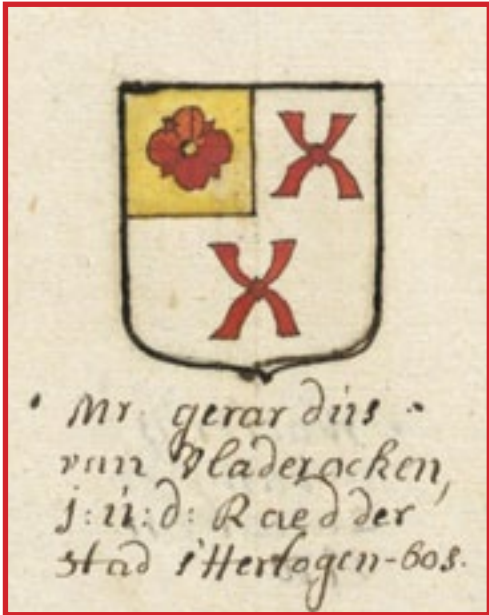 Mr. gerardús
van Vladeracken,
j: ú: d: Raed der
stad s'Hertogen-bos.